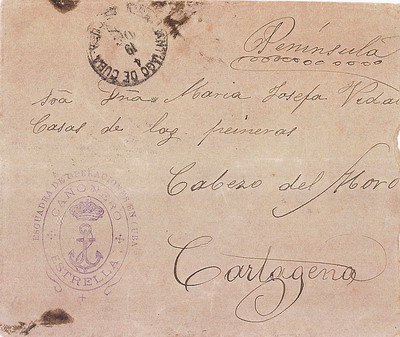 SANTIAGO DE CUBA
19
4
Península
Dña. Maria Josefa Vidal
Casas de las peineras
Cabezo del Moro
Cartagena
ESCUADRA DE OPERACIONES EN CUBA
CAÑONERO
ESTRELLA